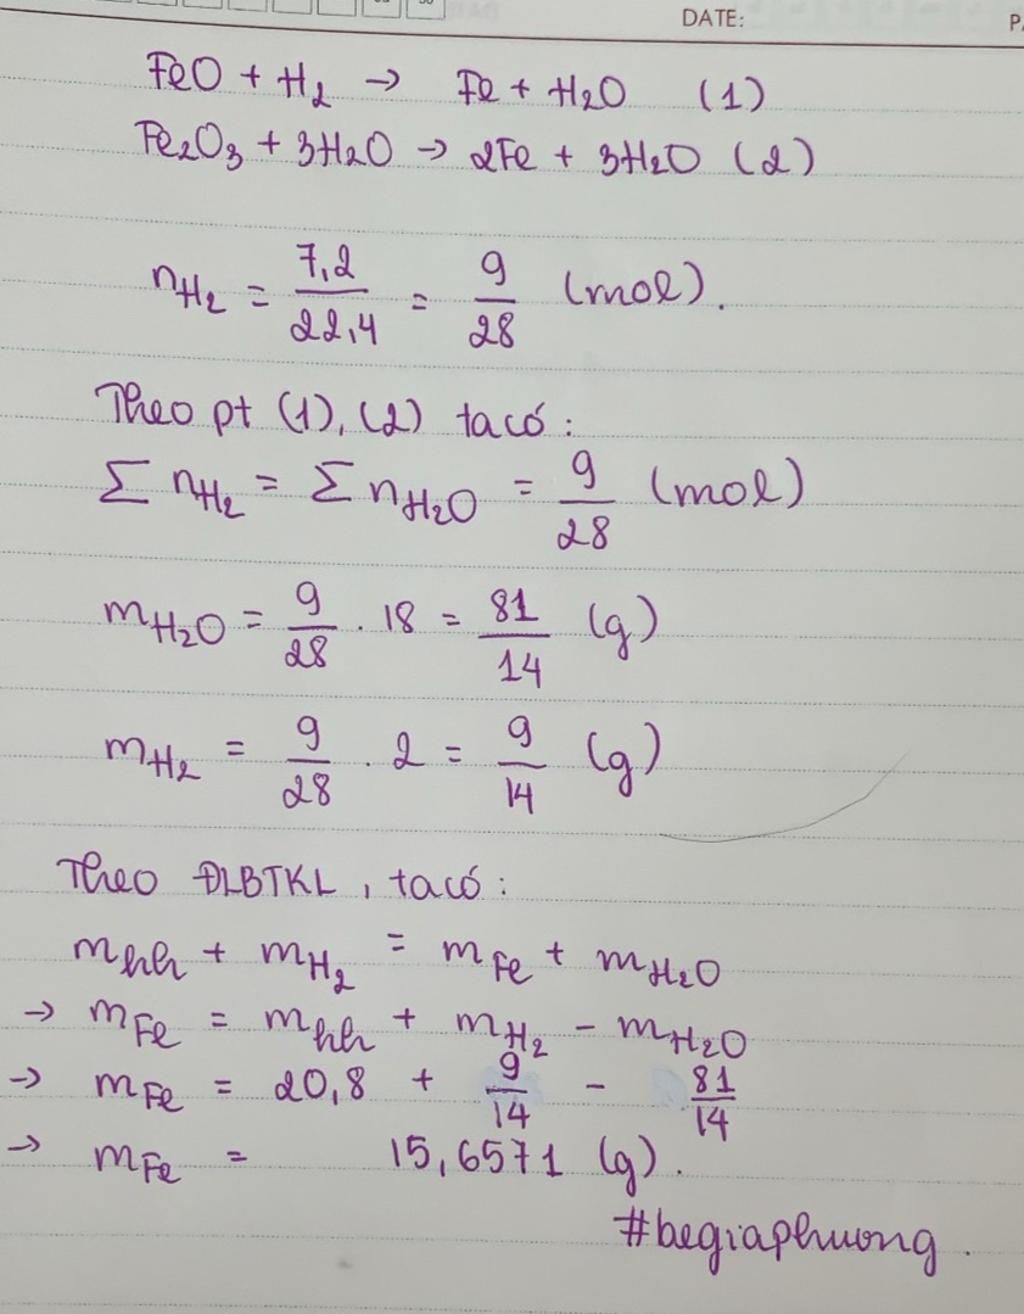 DATE:
P
FeO + H₂ → Fe + H₂O (1)
Fe₂O₃ + 3H₂O → 2Fe + 3H₂O (2)
nH₂ = 7,2/22,4 = 9/28 (mol).
Theo pt (1), (2) ta có:
Σ nH₂ = Σ nH₂O = 9/28 (mol)
mH₂O = 9/28 . 18 = 81/14 (g)
mH₂ = 9/28 . 2 = 9/14 (g)
Theo ĐLBTKL, ta có:
mhh + mH₂ = mFe + mH₂O
→ mFe = mhh + mH₂ - mH₂O
→ mFe = 20,8 + 9/14 - 81/14
→ mFe = 15,6571 (g).
#begiaphuong.